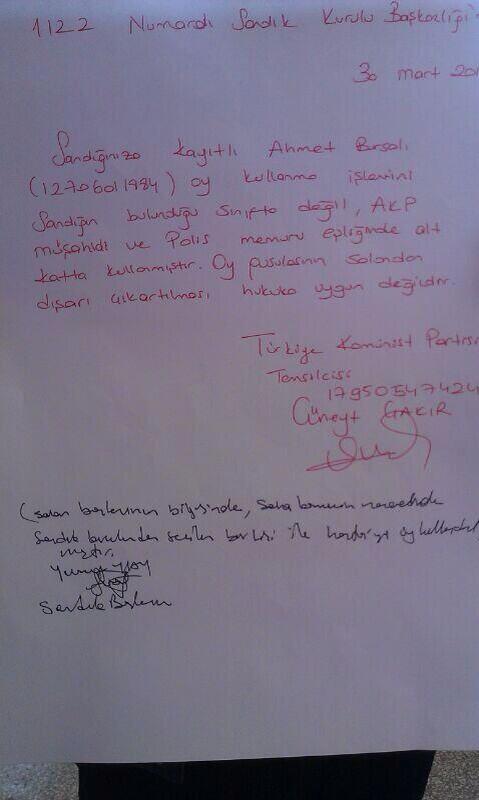 1122 Numaralı Sandık Kurulu Başkanlığı'
30 mart 201
Sandığınıza kayıtlı Ahmet Bursalı
(12706011984) oy kullanma işlemini
Sandığın bulunduğu sınıfta değil, AKP
müşahidi ve Polis memuru eşliğinde alt
katta kullanmıştır. Oy pusulasının Salondan
dışarı çıkartılması hukuka uygun değildir.
Türkiye Kominist Partisi
Temsilcisi
17950547424
Cüneyt ÇAKIR
(salon başkanının bilgisinde,
Sandık kurulundan seçilen bir kişi ile oy kullandırıl
mıştır.
Sandık Başkanı